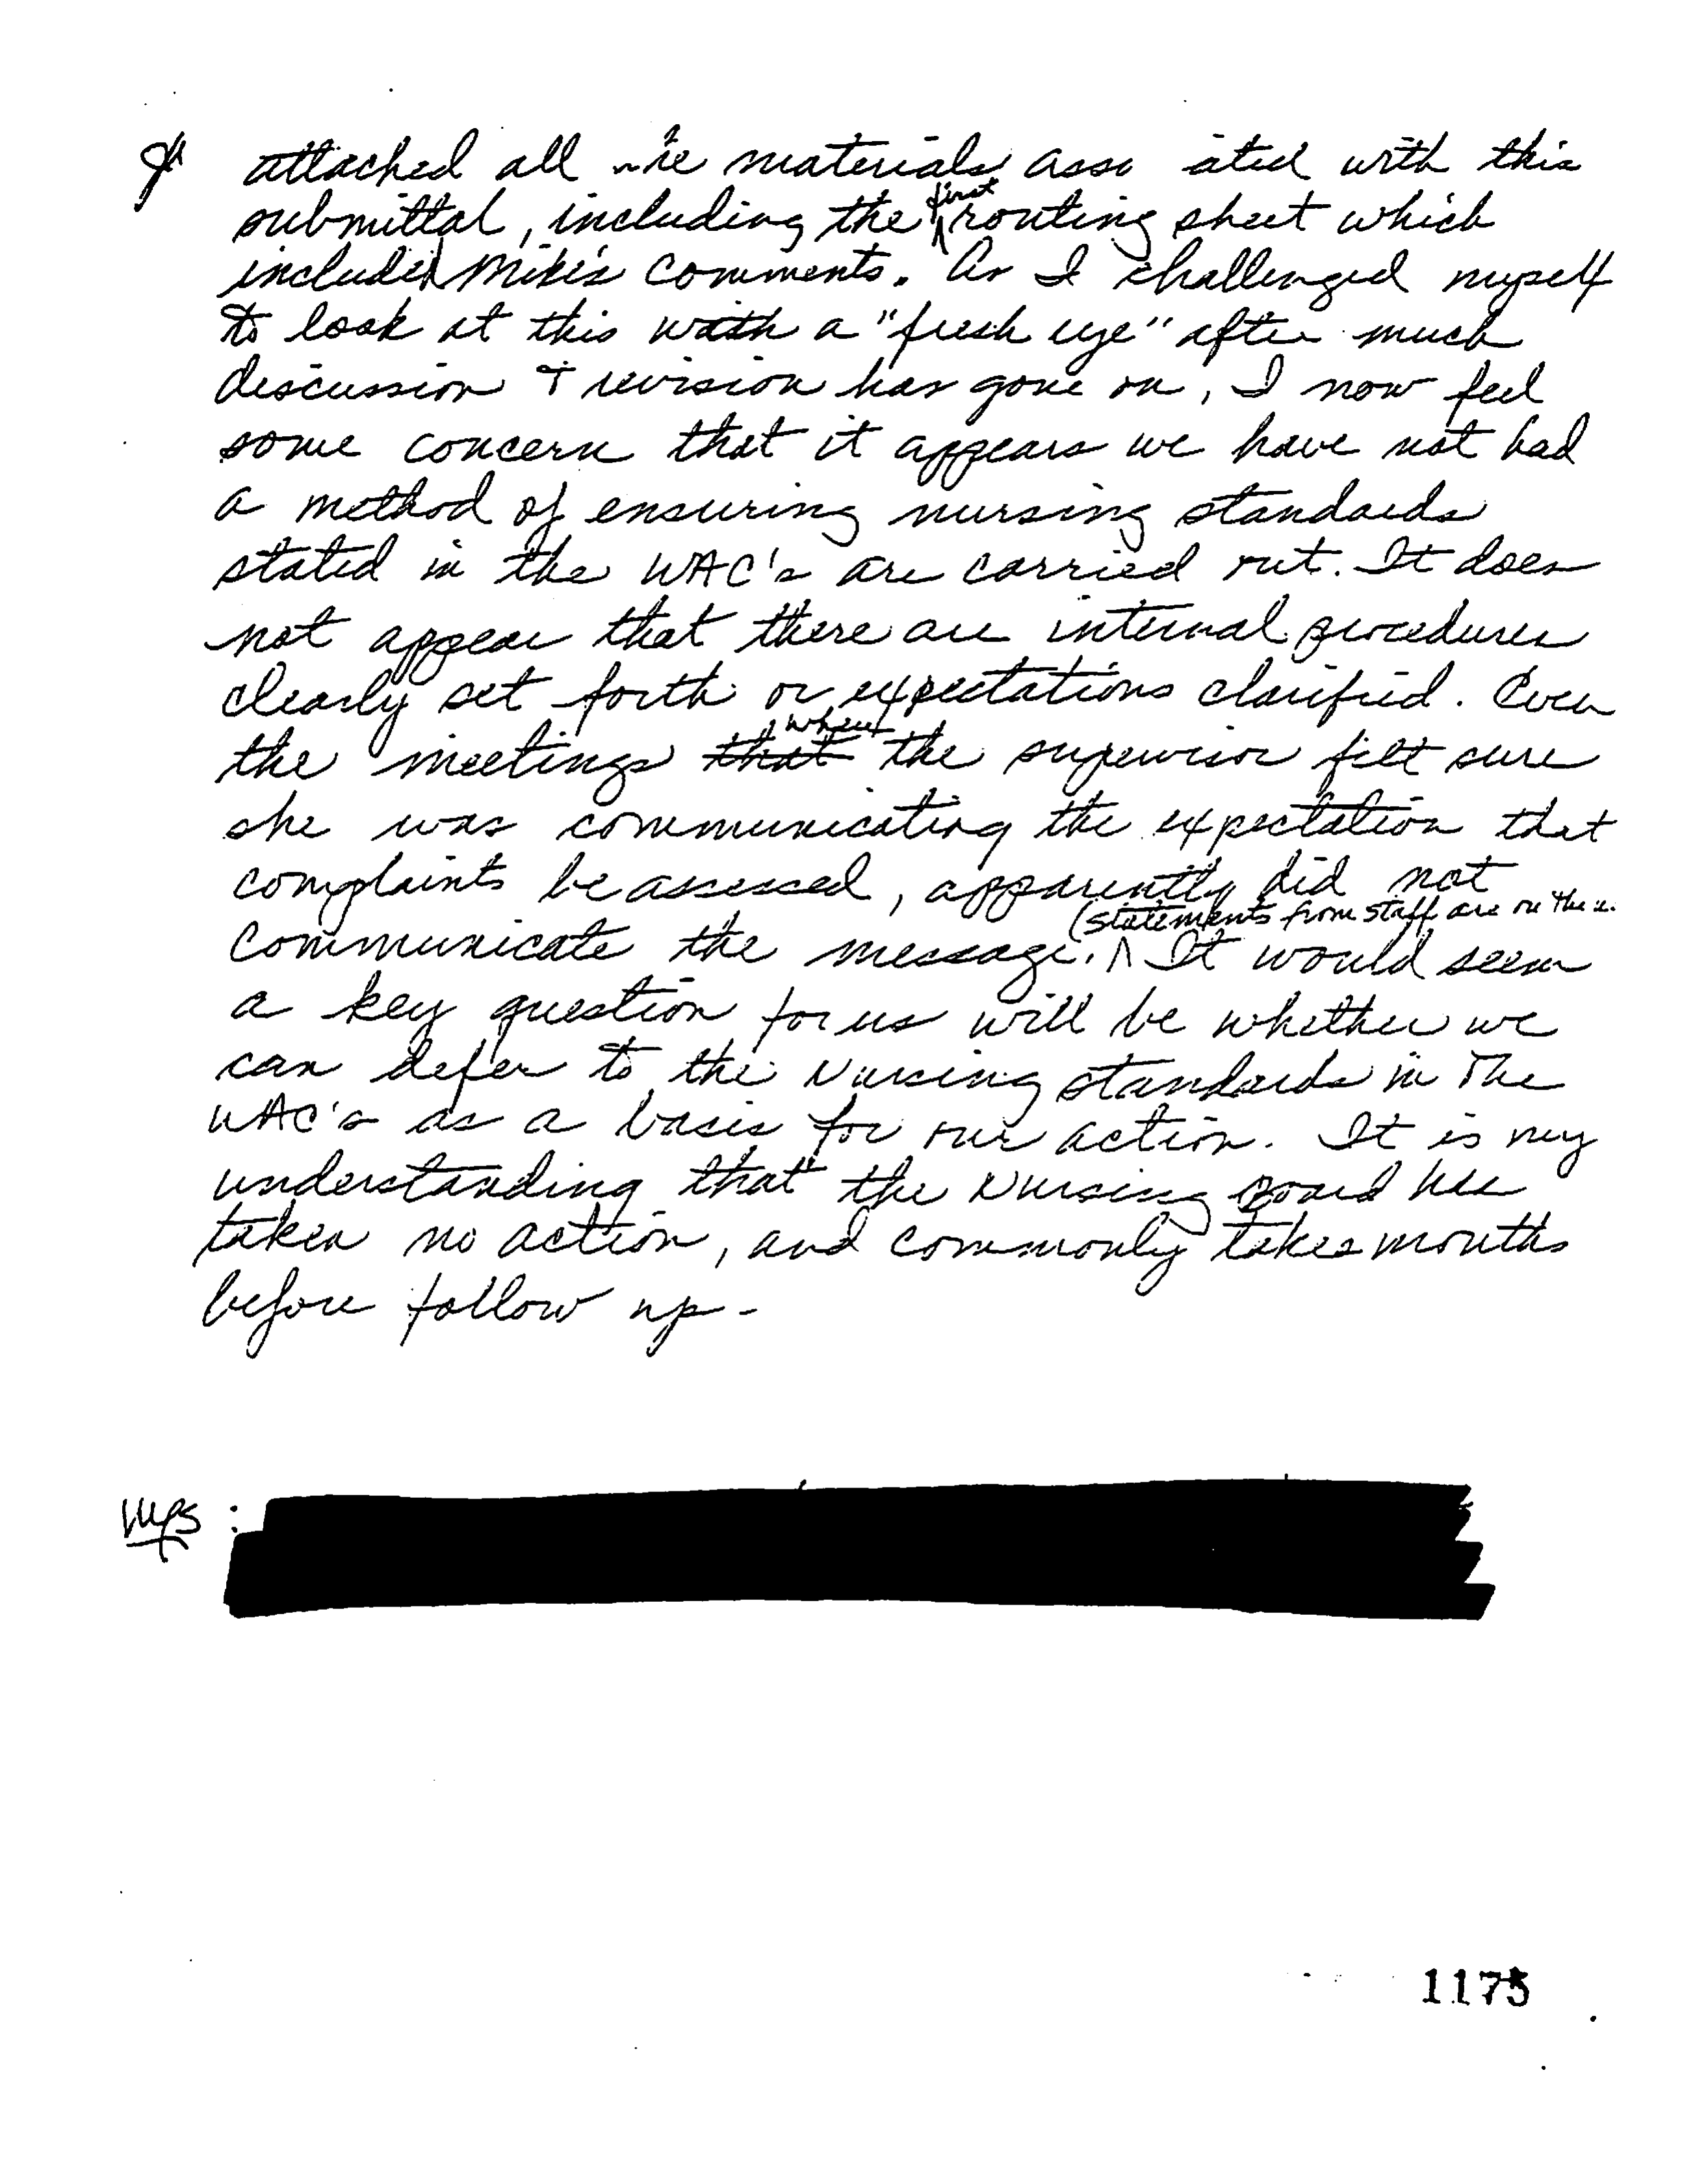 I attached all the materials asso ated with this
submittal, including the first routing sheet which
included Mike's comments. As I challenged myself
to look at this with a "fresh eye" after much
discussion & revision has gone on, I now feel
some concern that it appears we have not had
a method of ensuring nursing standards
stated in the WAC's are carried out. It does
not appear that there are internal procedures
clearly set forth or expectations clarified. Even
the meetings that when the supervisor felt sure
she was communicating the expectation that
complaints be assessed, apparently did not
(statements from staff are on the
communicate the message. It would seem
a key question for us will be whether we
can defer to the Nursing standards in the
WAC's as a basis for our action. It is my
understanding that the Nursing Board has
taken no action, and commonly takes months
before follow up -
:
1175